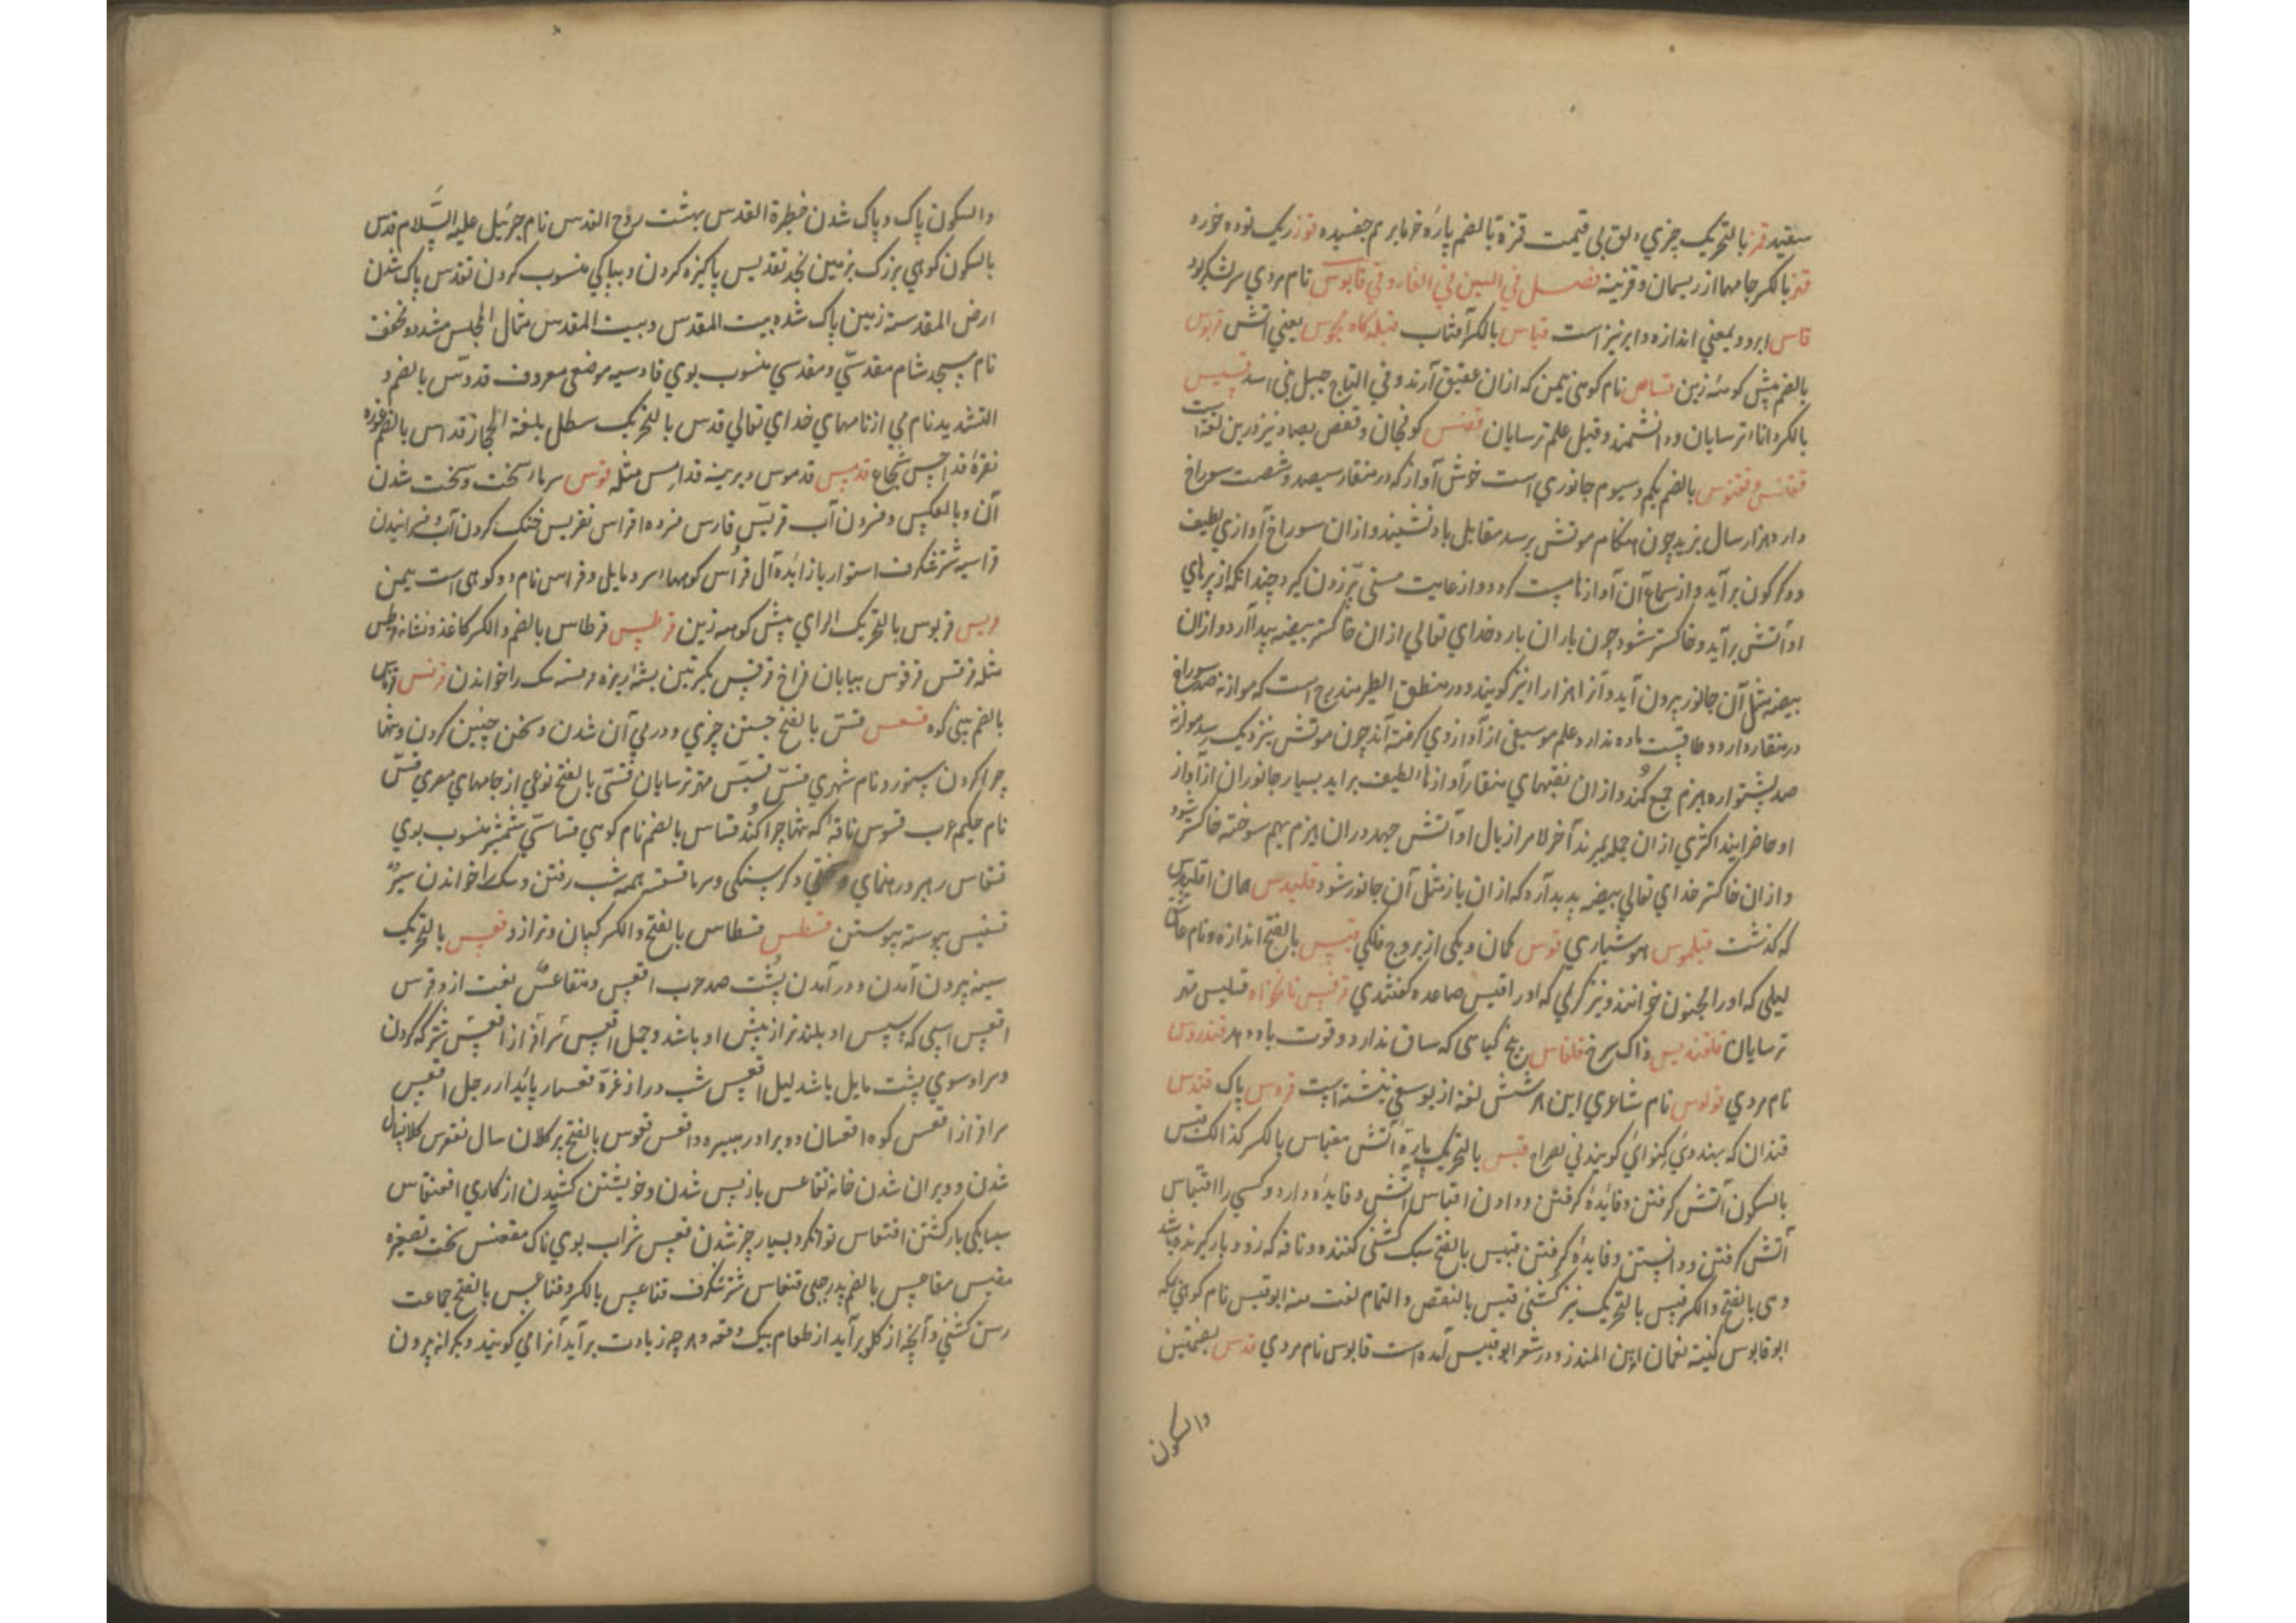 سفید قمز بالتحریک چیزي دلق بی قیمت قمزة بالضم پارهٔ خرما بر هم جفسیده قوز ریک توده خورد
قنز بالکسر جامها از ریسمان و قزینه فصل في السین في القاف و في قابوس نام مردي سرلشکر بود
قاس ابرو و بمعني اندازه و ابر نیز است قباس بالکسر آفتاب قبله کاه مجوس یعني آتش قربوس
بالضم پیش کوهه زین قساس نام کوهی بیمن که ازان عقیق آرند و في التاج جبل بني اسد قسیس
بالکسر دانای ترسایان و دانشمند و قیل علم ترسایان قفس کوفجان و قفص بصاد نیز درین لغة است
ققنس و ققنوس بالضم یکم و سیوم جانوري است خوش آواز که در منقار سیصد و شصت سوراخ
دارد هزار سال بزید چون هنکام موتش برسد مقابل باد نشیند و ازان سوراخ آوازي لطیف
دو کرکون برآید و از سماع آن آوازها مست کردد و از غایت مستی پر زدن کیرد چندانکه از پرهاي
او آتش برآید و خاکستر شود چون باران بارد خداي تعالي ازان خاکستر بیضه پیدا آرد و ازان
بیضه مثل آن جانور بیرون آید و آنرا هزارا نیز کویند و در منطق الطیر مندرج است که موازنه صد سوراخ
در منقار دارد و طاقیست ماده ندارد و علم موسیقی از آواز وي کرفته‌اند چون موتش نزدیک رسد موازنه
صد پشتواره هیزم جمع کند و ازان نقبهاي منقار آوازها لطیف برآید بسیار جانوران از آواز
او حاضر آیند اکثري ازان جمله بمیرند آخر الامر از بال او آتش جهد دران هیزم بهم سوخته خاکستر شود
و ازان خاکستر خداي تعالي بیضه پدید آرد که ازان باز مثل آن جانور شود قلیدس همان اقلیدس
که کذشت قیلموس هوشیاري قوس کمان و یکی از بروج فلکي قیس بالفتح اندازه و نام عاشق
لیلي که او را مجنون خوانند و نیز کرلي که او را قیس صاعده کفتندي قرقیس نانخواه قسلیس مهتر
ترسایان قلقندیس زاک سرخ قلقاس بیخ کیاهی که ساق ندارد و قوت باه دهد قندروس
نام مردي قولوس نام شاعري این هر شش لغة از یوسفي نبشته است قدوس پاک قندس
قندان که بهندوي کنوائي کویند في الصراح قبس بالتحریک پارهٔ آتش مقباس بالکسر کذالک قبس
بالسکون آتش کرفتن و فایدهٔ کرفتن و دادن اقباس آتش و فایده دادن کسي را اقتباس
آتش کرفتن و دانستن و فایدهٔ کرفتن قبیس بالفتح سبک کشنی کننده و ناقه که زود بار کیرنده باشد
وهی بالفتح والکسر قبس بالتحریک نیز کشنی قبس بالنقص و التمام لغت منه ابوقبیس نام کوهی بمکه
ابوقابوس کنیه نعمان ابن المنذر و در شعر ابوقبیس آمده است قابوس نام مردي قدس بضمتین
والسکون
والسکون پاک و پاک شدن حظیرة القدس بهشت روح القدس نام جبرئیل علیه السلام قدس
بالسکون کوهي بزرک بزمین نجد تقدیس پاکیزه کردن و بپاکي منسوب کردن تقدس پاک شدن
ارض المقدسة زمین پاک شده بیت المقدس و بیت المقدس مثال المجلس مشدد و مخفف
نام مسجد شام مقدسي و مقدسي منسوب بوي قادسیه موضعی معروف قدوس بالضم و
التشدید نام مي از نامهاي خداي تعالي قدس بالتحریک سطل بلغة الحجاز قداس بالضم غوزه
نقره قداحس شجاع قدمس قدموس دیرینه قدامس مثله قرس سرما سخت و سخت شدن
آن وبالعکس و فسردن آب قریس قارس فسرده اقراس تقریس خنک کردن آب و فسرانیدن
قراسیه شتر شکرف استوار یا زائدة آل قراس کوهها سرد مایل و قراس نام دو کوهی است بیمن
قربس قربوس بالتحریک الراي پیش کوهه زین قرطس قرطاس بالضم والکسر کاغذ و نشانه قرطس
مثله قرقس قرقوس بیابان فراخ قرقس بکسرتین پشه ریزه قرقسه سک را خواندن قرنس قرناس
بالضم بینی کوه قسس قس بالفتح جستن چیزي و در پی آن شدن و سخن چینی کردن و تنها
چرا کردن ستور و نام شهري قس قسیس مهتر ترسایان قسي بالفتح نوعي از جامهاي مصري قس
نام حکیم عرب قسوس ناقه که تنها چرا کند قساس بالضم نام کوهي قساسي شمشیر منسوب بوي
قسقاس رهبر و رهنماي و سختي و کرسنکی و سرما قسقسة همه شب رفتن و سک را خواندن سیر
قسقیس پیوسته پیوستن قسطس قسطاس بالفتح والکسر کپان و ترازو قعس بالتحریک
سینه بیرون آمدن و در آمدن پشت ضد حدب اقعس و متقاعس نعت ازو فرس
اقعس اسپی که پس او بلندتر از پیش او باشد و جمل اقعس سرافراز اقعس شتر که کردن
و سر او سوي پشت مایل باشد لیل اقعس شب دراز عزة قعساء پائیدار رجل اقعس
سرافراز اقعس کوه اقعسان دو برادر هبیره و اقعس قعوس بالفتح پیر کلان سال تقعوس کلانسال
شدن و ویران شدن خانه تقاعس باز پس شدن و خویشتن کشیدن از کاري اقعنساس
سپایکی بازکشتن اقتعاس توانکر و بسیار چیز شدن قعس شراب بوي ناک مقعنسس سخت تصغیره
مقیعس مقاعس بالضم پدر حیی قنعاس شتر شکرف قناعیس بالکسر و قناعس بالفتح جماعت
رسن کشتي و آنچه از کلو برآید از طعام بیک دفعه و هرچه زیادت برآید آنرا قي کویند و بکرانه بیرون